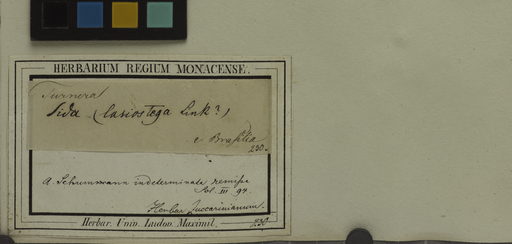 HERBARIUM REGIUM MONACENSE.
Turnera
Sida (lasiostega Link?)
e Brasilia
230.
A. Schumann indeterminata remisit
III 94.
Herbar. Zuccarinianum.
Herbar. Univ. Ludov. Maximil.